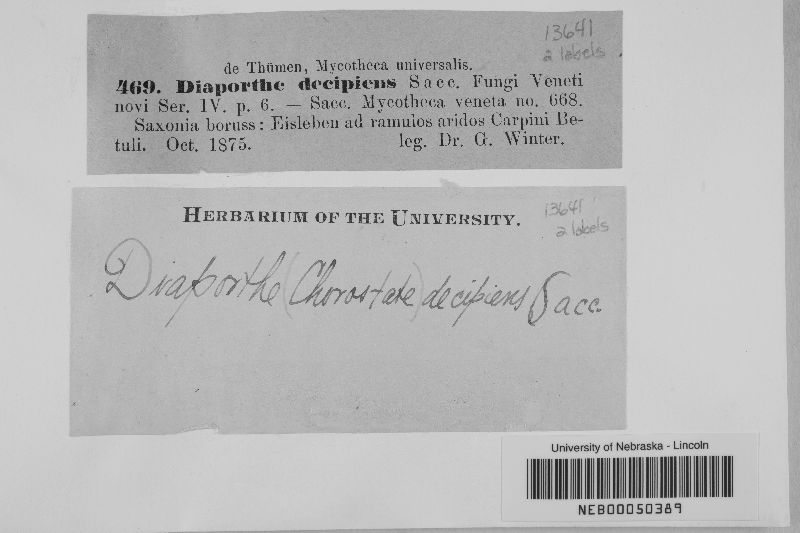 13641
2 labels
de Thümen, Mycotheca universalis.
469. Diaporthe decipiens Sacc. Fungi Veneti
novi Ser. IV. p. 6. — Sacc. Mycotheca veneta no. 668.
Saxonia boruss: Eisleben ad ramulos aridos Carpini Be-
tuli. Oct. 1875. leg. Dr. G. Winter.
HERBARIUM OF THE UNIVERSITY.
13641
2 labels
Diaporthe (Chorostate) decipiens Sacc.
University of Nebraska - Lincoln
NEB00050389